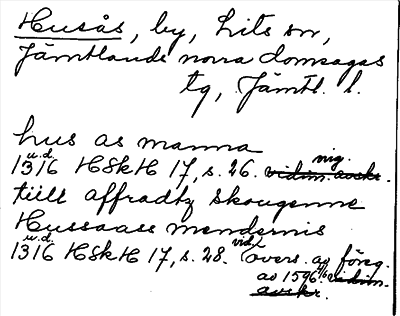 Husås, by, Lits sn,
Jämtlands norra domsagas
tg, Jämtl. l.
hus as manna
u.d. nig.
1316 HSkH 17, s. 26. vidim. avskr.
tiill affradtz skougenne
Hussaass mendernis
u.d. vid.
1316 HSkH 17, s. 28. övers. av föreg.
av 1596 vidim.
avskr.